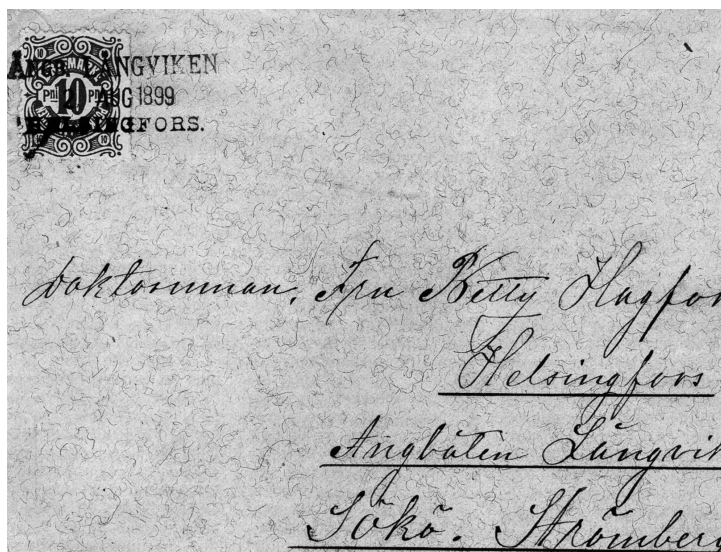 ÅNGB. LÅNGVIKEN
10
Pni 10 Pni
2 AUG 1899
HELSINGFORS.
10 10
Doktorinnan, Fru Betty Hagfor
Helsingfors
Ångbåten Långvik
Sökö. Strömberg